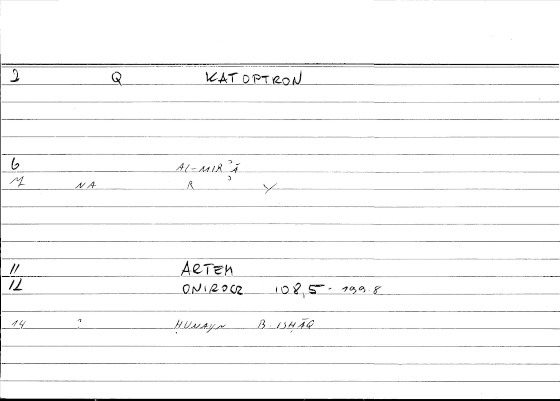 1 Q KATOPTRON
6 AL-MIRʾĀ
M NA R ʾ Y
11 ARTEM
12 ONIROCR 108,5 - 199.8
14 : ḤUNAYN B. ISḤĀQ